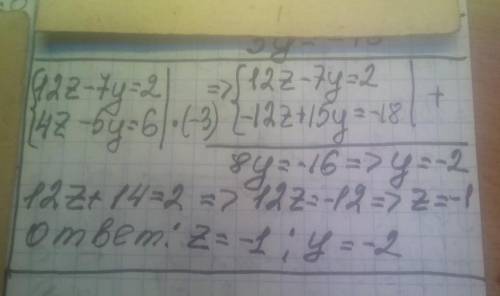 {12z-7y=2| => {12z-7y=2 | +
{4z-5y=6|·(-3) {-12z+15y=-18|
8y=-16=>y=-2
12z+14=2 => 12z=-12=>z=-1
ответ: z=-1; y=-2